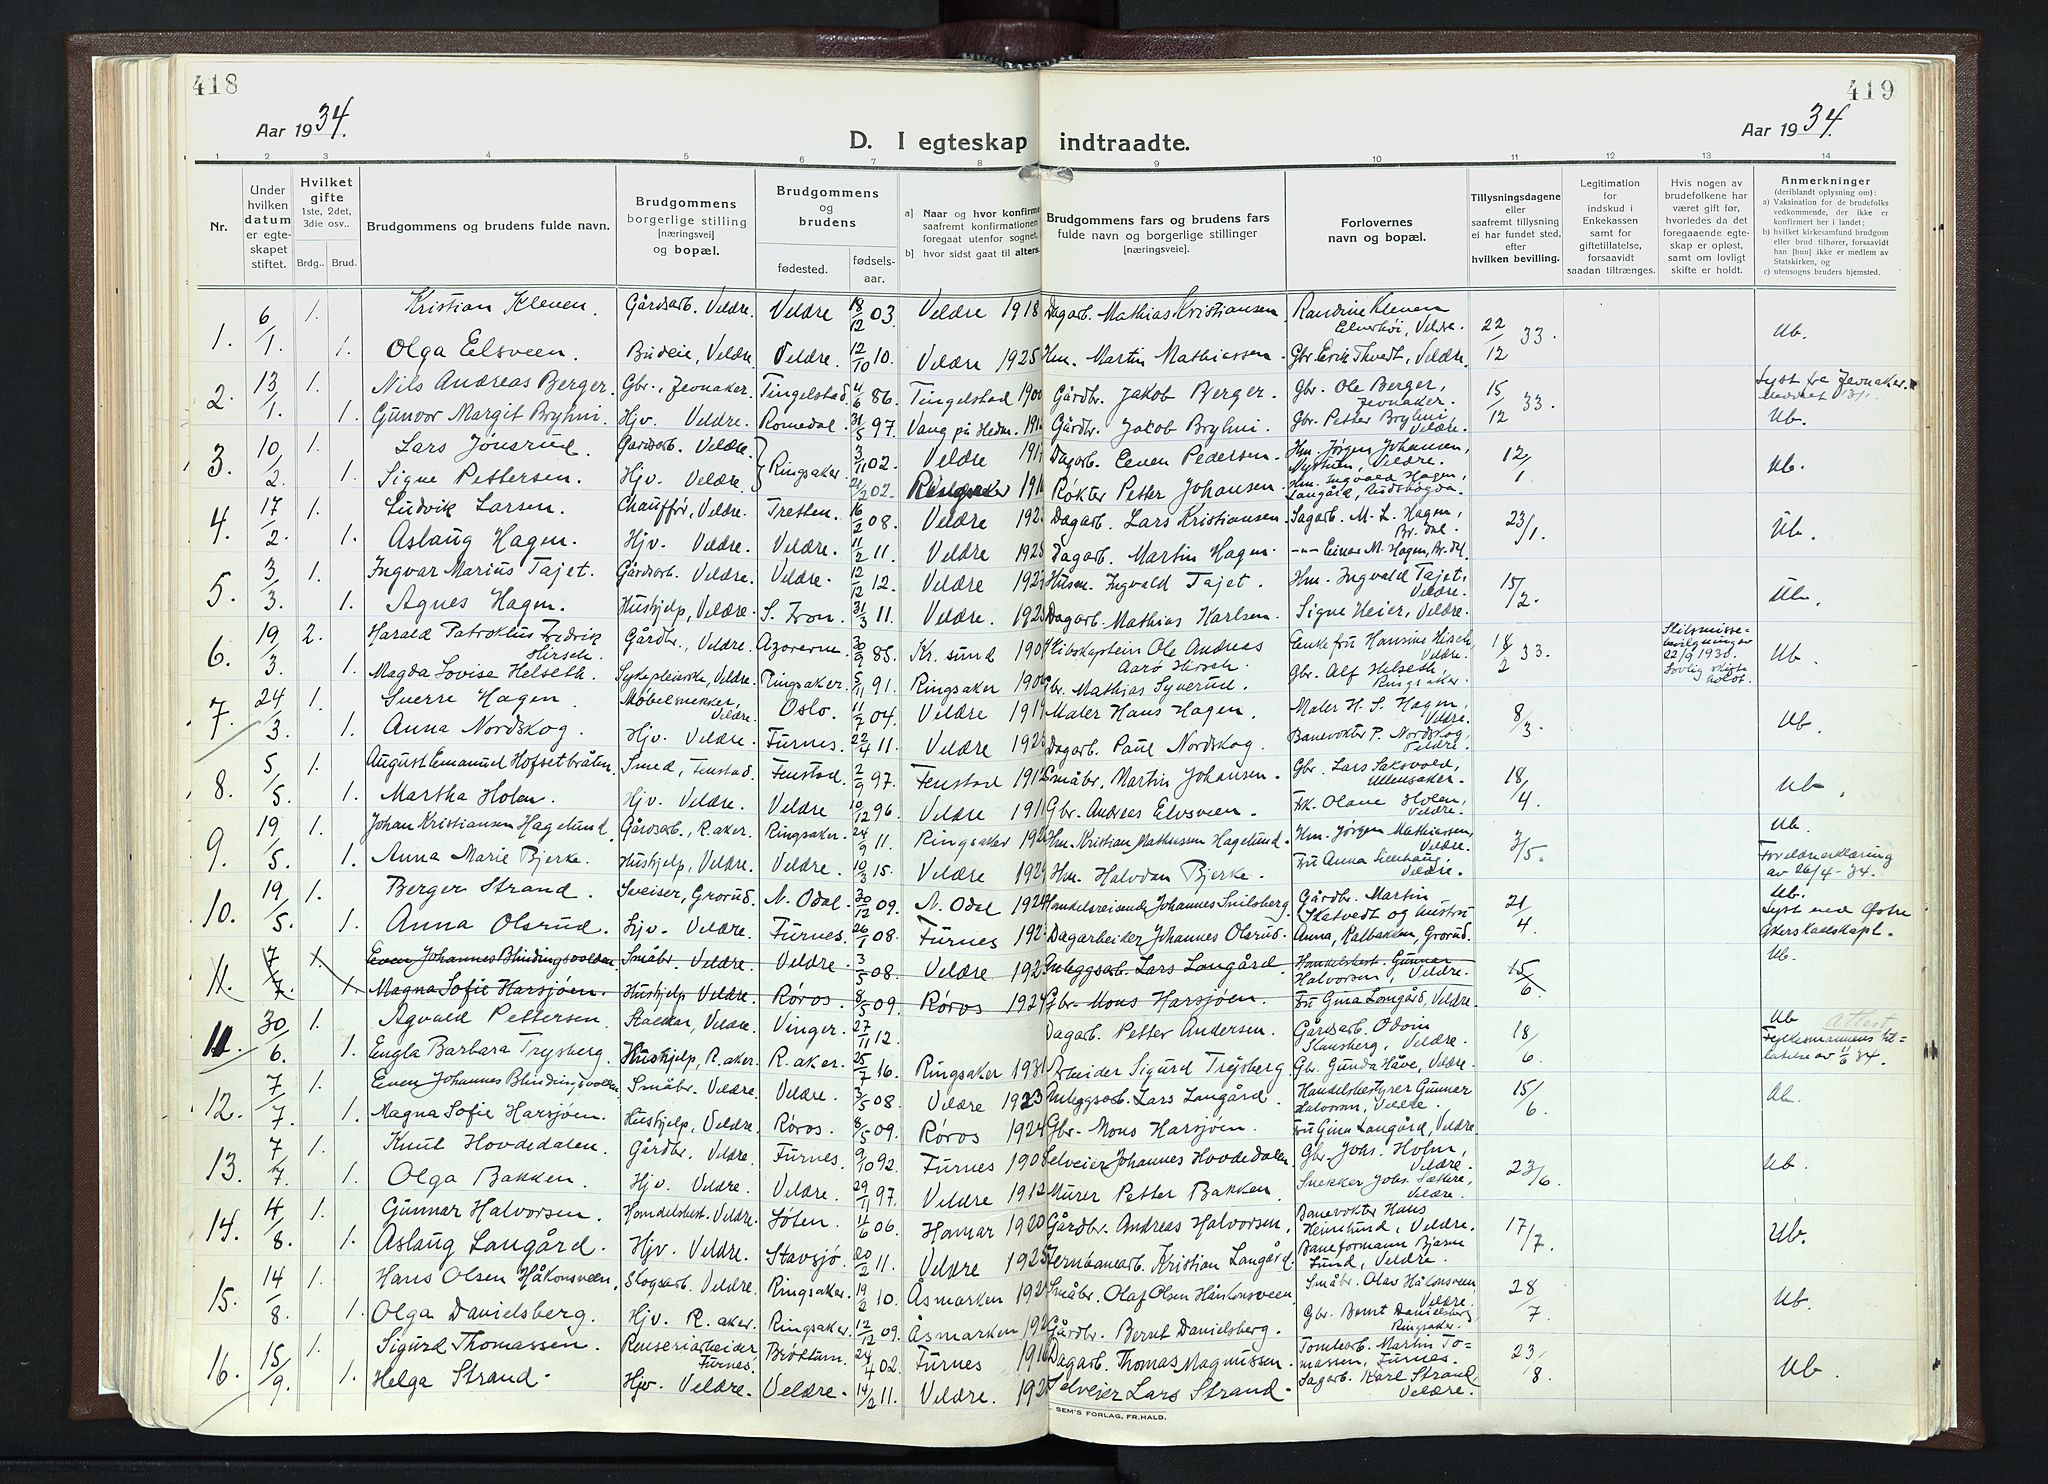 418
419
Aar 1934.
Aar 1934.
D. I egteskap indtraadte.
1 2 3 4 5 6 7 8 9 10 11 12 13 14
Nr.
Under hvilken datum er egteskapet stiftet.
Hvilket gifte 1ste, 2det, 3die osv..
Brdg.. Brud.
Brudgommens og brudens fulde navn.
Brudgommens borgerlige stilling [næringsvei] og bopæl.
Brudgommens og brudens
fødested.
fødselsaar.
a) Naar og hvor konfirme saafremt konfirmationen foregaat utenfor sognet,
b) hvor sidst gaat til alters.
Brudgommens fars og brudens fars fulde navn og borgerlige stillinger [næringsveie].
Forlovernes navn og bopæl.
Tillysningsdagene eller saafremt tillysning ei har fundet sted, efter hvilken bevilling.
Legitimation for indskud i Enkekassen samt for giftetillatelse, forsaavidt saadan tiltrænges.
Hvis nogen av brudefolkene har været gift før, hvorledes da det foregaaende egteskap er opløst, samt om lovligt skifte er holdt.
Anmerkninger (deriblandt oplysning om): a) Vaksination for de brudefolks vedkommende, der ikke er konfirmert her i landet; b) hvilket kirkesamfund brudgom eller brud tilhører, forsaavidt han [hun] ikke er medlem av Statskirken, og c) utensogns bruders hjemsted.
1. 6/1 1. Kristian Kleven. Gårdsarb. Veldre. Veldre 18/12 03. Veldre 1918 Dagarb. Mathias Kristiansen. Randine Kleven Elverhøi, Veldre. 22/12 33. Ub.
1. Olga Elsveen. Budeie, Veldre. Veldre. 12/10 10. Veldre 1925 Hm. Martin Mathiassen. Gbr. Erik Thvedt, Veldre.
2. 13/1. 1. Nils Andreas Berger. Gbr., Jevnaker. Tingelstad. 4/6 86. Tingelstad 190 Gårdbr. Jakob Berger. Gbr. Ole Berger, Jevnaker. 15/12 33. Lyst fra Jevnaker.
1. Gunvor Margit Bryhni. Hjv. Veldre. Romedal. 31/5 97. Vang på Hedm. 191 Gårdbr. Jakob Bryhni. Gbr. Petter Bryhni, Veldre. Ub.
3. 10/2. 1. Lars Jønsrud. Gårdsarb. Veldre. Ringsaker. 3/11 02. Veldre 191 Dagarb. Even Pedersen. Hm. Jørgen Johansen, Nystuen, Veldre. 12/1 Ub.
1. Signe Pettersen. Hjv. Veldre. 02. Ringsaker 191 Røkter Petter Johansen. Hm. Ingvald Hagen, Langård,
4. 17/2. 1. Ludvik Larsen. Chauffør, Veldre. Tretten. 16/2 08. Veldre 192 Dagarb. Lars Kristiansen. Sagarb. M. L. Hagen, Br. dal. 23/1. Ub.
1. Aslaug Hagen. Hjv. Veldre. Veldre. 11/2 11. Veldre 1925 Dagarb. Martin Hagen. -"- Einar M. Hagen, Br. dal.
5. 3/3. 1. Ingvar Marius Tajet. Gårdsarb. Veldre. Veldre. 12/12 12. Veldre 192 Husm. Ingvald Tajet. Hm. Ingvald Tajet, Veldre. 15/2. Ub.
1. Agnes Hagen. Hushjelp, Veldre. S. Fron. 31/3 11. Veldre. 192 Dagarb. Mathias Karlsen. Signe Heier, Veldre.
6. 19/3. 2. Harald Patroklus Fredrik Hirsch. Gårdbr., Veldre. Azorerne. 30/9 85. Kr. sund 190 Skibskaptein Ole Andreas Aarø Hirsch. Enkefru Hansine Hirsch, Veldre. 18/2 33. Skilsmissebevilgning av 22/9 1930. Lovlig skifte holdt. Ub.
1. Magda Lovise Helseth. Sykepleierske, Veldre. Ringsaker. 5/11 91. Ringsaker 190 Gbr. Mathias Syverud. Gbr. Alf Helseth, Ringsaker.
7. 24/3. 1. Sverre Hagen. Møbelsnekker, Veldre. Oslo. 11/7 04. Veldre 1919 Maler Hans Hagen. Maler H. S. Hagen, Veldre. 8/3. Ub.
1. Anna Nordskog. Hjv. Veldre. Furnes. 22/4 11. Veldre 192 Dagarb. Paul Nordskog. Banevokter P. Nordskog, Veldre.
8. 5/5. 1. August Emanuel Hofsetbråten. Smed, Fenstad. Fenstad. 2/9 97. Fenstad 1912 Småbr. Martin Johansen. Gbr. Lars Saksvold, Ullensaker. 18/4. Ub.
1. Martha Holen. Hjv. Veldre. Veldre 10/12 96. Veldre 191 Gbr. Andreas Elvsveen. Frk. Olave Holen, Veldre.
9. 19/5. 1. Johan Kristiansen Hagelund. Gårdsarb., R.aker. Ringsaker. 24/9 11. Ringsaker 192 Hm. Kristian Mathiassen Hagelund. Hm. Jørgen Mathiassen, Veldre. 3/5. Ub.
1. Anna Marie Bjerke. Hushjelp, Veldre. Veldre. 10/3 15. Veldre 192 Hm. Halvdan Bjerke. Fru Anna Lillehaug, Veldre. Foreldreerklæring av 26/4-34.
10. 19/5. 1. Berger Strand. Sveiser, Grorud. N. Odal. 30/12 09. N. Odal 1924 Handelsreisende Johannes Snilsberg. Gårdbr. Martin Skatvedt og hustru 21/4 Ub. Lyst ved Østre Akers
1. Anna Olsrud. Hjv. Veldre. Furnes. 26/1 08. Furnes 192 Dagarbeider Johannes Olsrud. Anna, Kalbakken, Grorud.
11. 7/7. 1. Even Johannes Blindingsvolden. Småbr. Veldre. Veldre. 3/5 08. Veldre 192 Anleggsarb. Lars Langård. Handelsbest. Gunnar Halvorsen, Veldre. 15/6. Ub.
1. Magna Sofie Harsjøen. Hushjelp Veldre. Røros. 8/5 09. Røros 1924 Gbr. Mons Harsjøen. Fru Gina Langård, Veldre.
11. 30/6. 1. Agvald Pettersen. Veldre. Vinger. 27/11 12. Dagarb. Petter Andersen. Gårdsarb. Odvin Veldre. 18/6. Ub attest Fylkesmannens tillatelse av 11/6 34.
1. Engla Barbara Trysberg. Hushjelp, R.aker. R.aker. 25/7 16. Ringsaker 1931 Arbeider Sigurd Trysberg. Gbr. Gunda Håve, Veldre.
12. 7/7. 1. Even Johannes Blindingsvolden. Småbr. Veldre. Veldre. 3/5 08. Veldre 1923 Anleggsarb. Lars Langård. Handelsbestyrer Gunnar Halvorsen, Veldre. 15/6. Ub.
1. Magna Sofie Harsjøen. Hushjelp, Veldre. Røros. 8/5 09. Røros 1924 Gbr. Mons Harsjøen. Fru Gina Langård, Veldre.
13. 7/7. 1. Knut Hovdedalen. Gårdbr. Veldre. Furnes. 9/10 92. Furnes 190 Selveier Johannes Hovdedalen. Gbr. Johs. Holm, Veldre. 23/6. Ub.
1. Olga Bakken. Hjv. Veldre. Veldre. 29/11 97. Veldre 1912 Murer Petter Bakken. Snekker Johs. Sætere, Veldre.
14. 4/8. 1. Gunnar Halvorsen. Handelsbest. Veldre. Løten. 11/6 06. Hamar 1920 Gårdbr. Andreas Halvorsen. Banevokter Hans Heimlund, Veldre. 17/7. Ub.
1. Aslaug Langård. Hjv. Veldre. Stavsjø. 20/2 11. Veldre 1925 Jernbanearb. Kristian Langård. Baneformann Bjarne Lund, Veldre.
15. 14/8. 1. Hans Olsen Håkonsveen. Skogsarb. Veldre. Ringsaker. 19/2 10. Åsmarken 192 Småbr. Olaf Olsen Håkonsveen. Småbr. Olav Håkonsveen, Veldre. 28/7 Ub.
1. Olga Danielsberg. Hjv. R.aker. Ringsaker. 12/12 09. Åsmarken 192 Gårdbr. Bernt Danielsberg. Gbr. Bernt Danielsberg Ringsaker.
16. 15/9. 1. Sigurd Thomassen. Renseriarbeider Furnes. Brøttum. 24/4 02. Furnes 191 Dagarb. Thomas Magnussen. Tomtearb. Martin Tomassen, Furnes. 23/8. Ub.
1. Helga Strand. Hjv. Veldre. Veldre. 14/2 11. Veldre. 192 Selveier Lars Strand. Sagarb. Karl Strand, Veldre.
SEM'S FORLAG, FR.HALD.